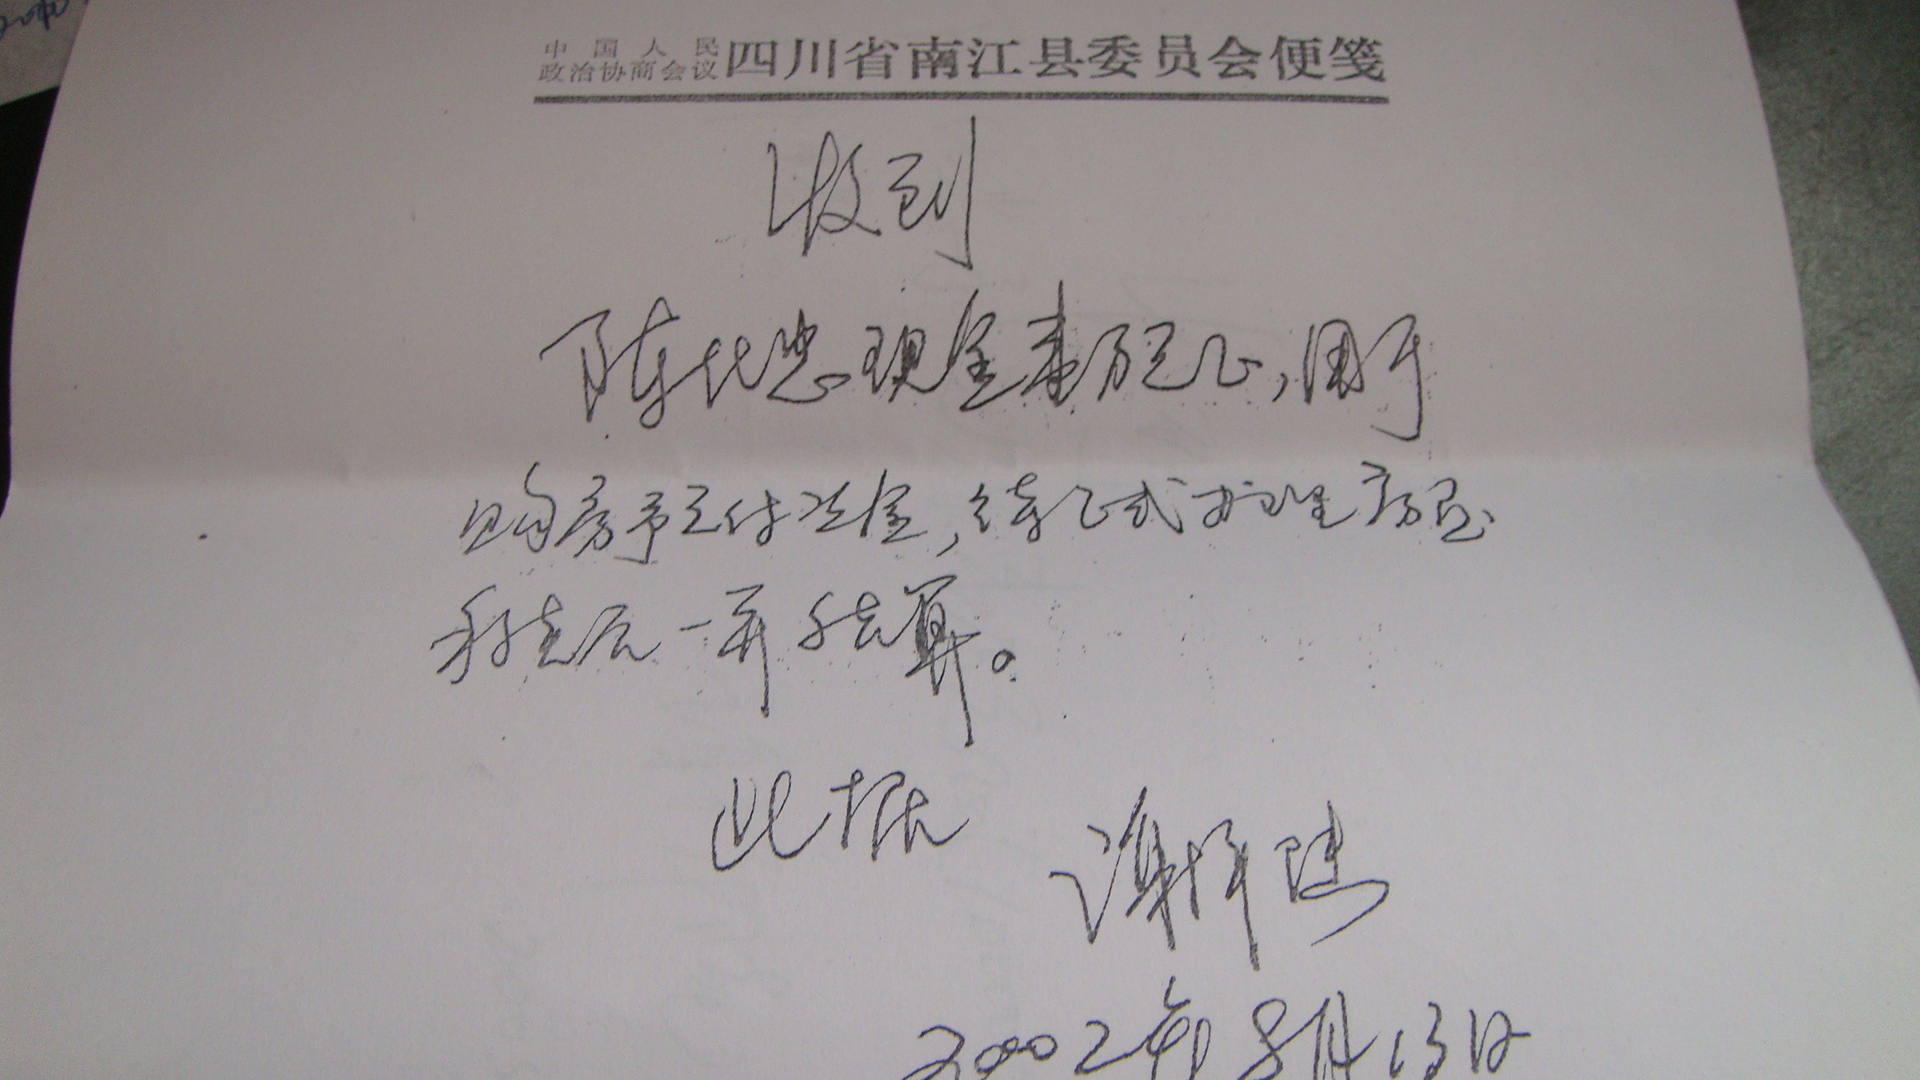 中国人民
政治协商会议 四川省南江县委员会便笺
收到
陈化忠现金壹万元正,用于
购房予支付现金,待正式办理房屋
移交后一并结算。
此据
谢
2002年8月13日